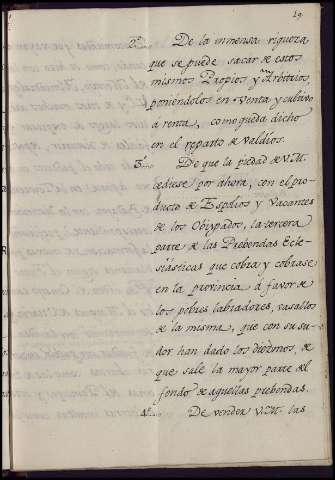 19
2º... De la inmensa riqueza
que se puede sacar de estos
mismos Propios y Arbitrios
poniendolos en Venta y cultivo
á renta, como queda dicho
en el reparto de Valdios.
3º... De que la piedad de V.M.
cediese por ahora, con el pro-
ducto de Espolios y Vacantes
de los Obispados, la tercera
parte de las Prebendas Ecle-
siásticas que cobra y cobrase
en la provincia á favor de
los pobres labradores, vasallos
de la misma, que con su su-
dor han dado los diezmos, de
que sale la mayor parte del
fondo de aquellas prebendas.
4º... De vender V.M. las